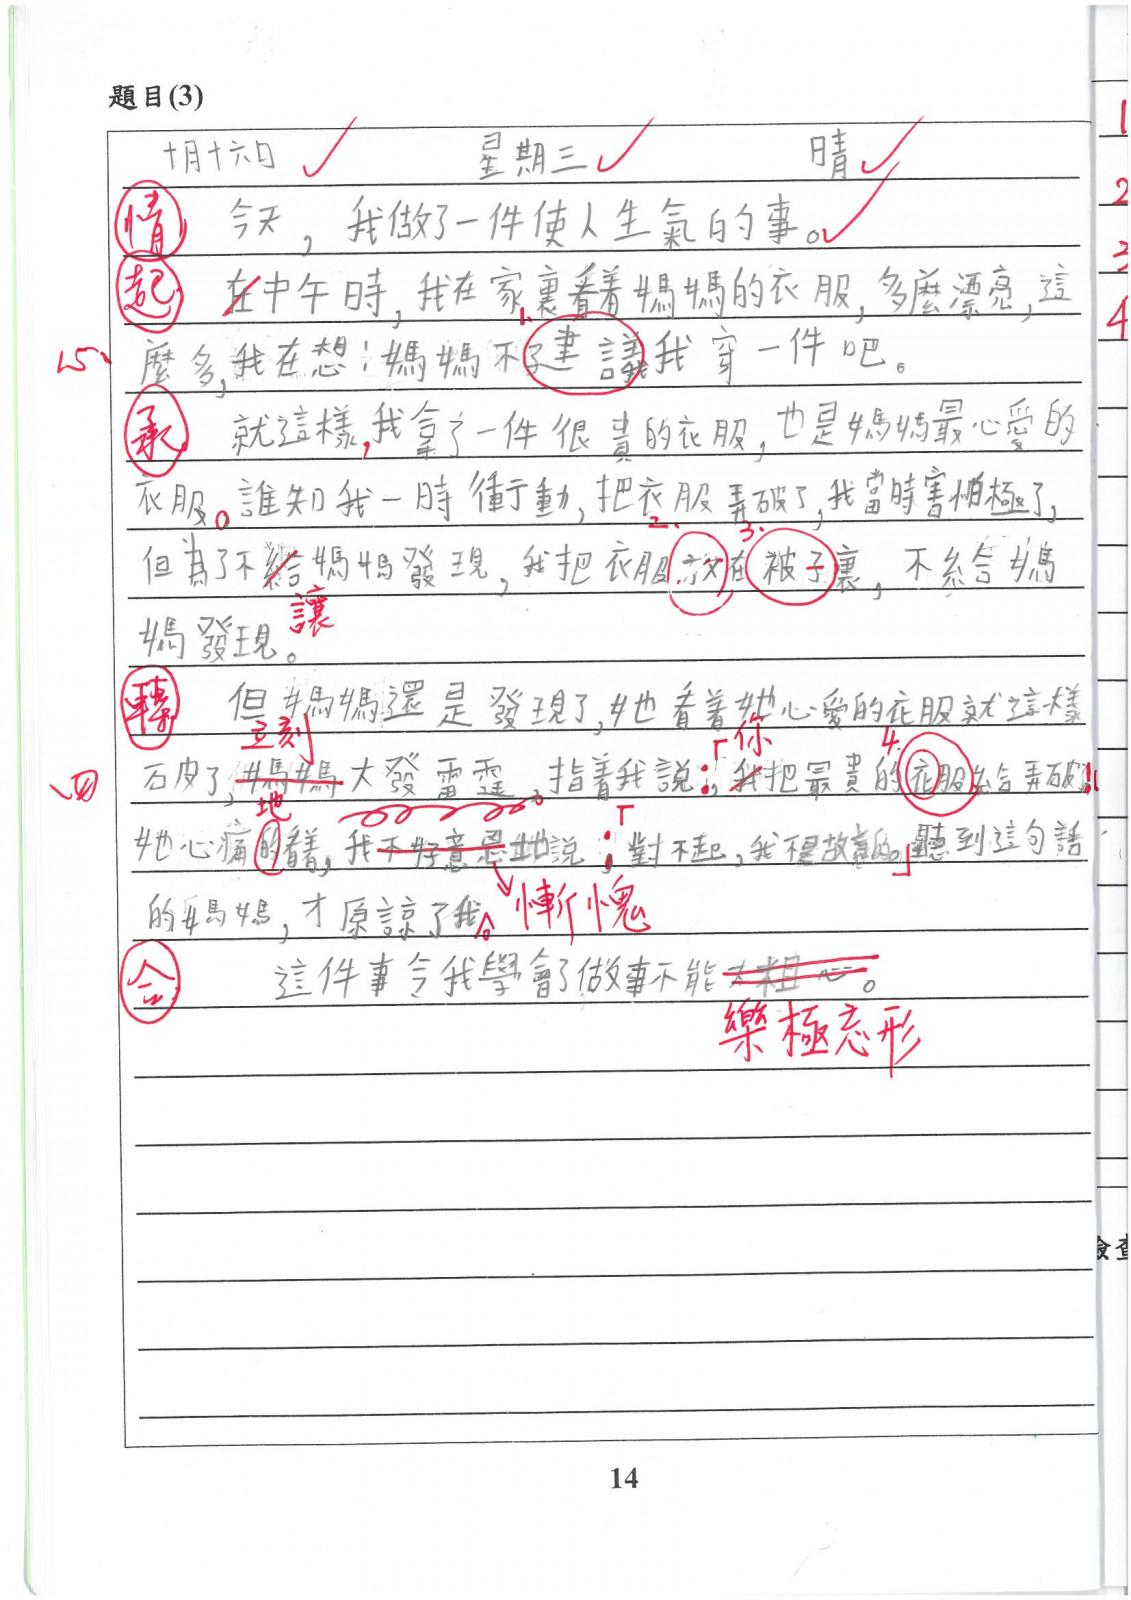 題目(3)
十月十六日 星期三 晴
情 今天，我做了一件使人生氣的事。
起 在中午時，我在家裏看着媽媽的衣服，多麼漂亮，這
1.
麼多，我在想：媽媽不了建議我穿一件吧。
承 就這樣，我拿了一件很貴的衣服，也是媽媽最心愛的
衣服。誰知我一時衝動，把衣服弄破了，我當時害怕極了，
2. 3.
但為了不給媽媽發現，我把衣服放在被子裏，不給媽
讓
媽發現。
轉 但媽媽還是發現了，她看着她心愛的衣服就這樣
立刻 「你 4.
破了，媽媽大發雷霆，指着我說：我把最貴的衣服給弄破
地 「
她心痛的看着，我不好意思地說：對不起，我不是故意的。」聽到這句話
慚愧
的媽媽，才原諒了我。
合 這件事令我學會了做事不能太粗心。
樂極忘形
14
1
2
3
4
檢查